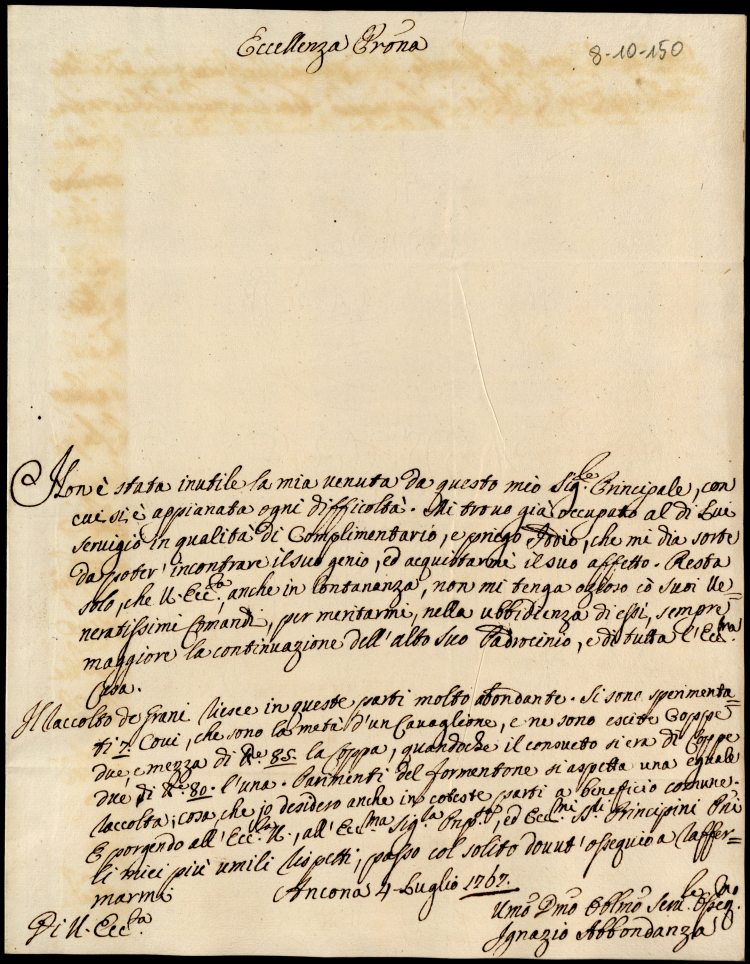 Eccellenza Prona
8-10-150
Non è stata inutile la mia venuta da questo mio Sigr. Principale, con
cui si è appianata ogni difficoltà. Mi trovo già occupato al di Lui
servigio in qualità di Complimentario, e priego Iddio, che mi dia sorte
da poter' incontrare il suo genio, ed acquistarmi il suo affetto. Resta
solo, che V. Eccza, anche in lontananza, non mi tenga ozioso cò suoi Ve=
neratissimi Comandi, per meritarmi, nella ubbidienza di essi, sempre
maggiore la continuazione dell'alto suo Padrocinio, e di tutta l'Eccma
Casa.
Il Raccolto de Grani riesce in queste parti molto abondante. Si sono sperimenta=
ti 7 Covi, che sono la metà d'un Cavaglione, e ne sono escite Coppe
due e mezza di 85. la Coppa, quandoche il consueto si era di Coppe
due di 80. l'una. Parimenti del formentone si aspetta una eguale
raccolta; cosa che io desidero anche in coteste parti a beneficio comune.
E porgendo all'Eccza V., all'Eccma Sigra, ed Eccmi Sri Principini
li miei più umili rispetti, passo col solito dovut' ossequio a raffer=
marmi
Ancona 4 Luglio 1767.
Di V. Eccza
Umo Dmo Oblmo Serre Osseqmo
Ignazio Abbondanza